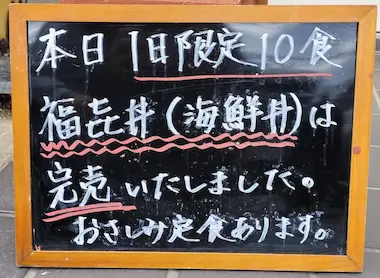 本日1日限定10食
福㐂丼(海鮮丼)は
完売いたしました。
おさしみ定食あります。